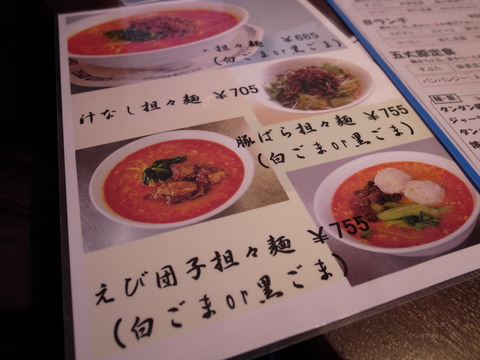 ・担々麺 ￥685
(白ごまor黒ごま)
汁なし担々麺 ￥705
豚ばら担々麺 ￥755
(白ごまor黒ごま)
えび団子担々麺 ￥755
(白ごまor黒ごま)
Bランチ
五丈原定食
バンバンジー